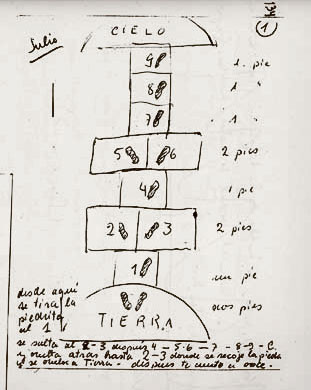 (1)
Julio
CIELO
9 1 pie
8 1 "
7 " 1 "
5 6 2 pies
4 1 pie
2 3 2 pies
1 un pie
dos pies
TIERRA
desde aqui
se tira la
piedrita
al 1
se salta al 2-3 despues 4 — 5-6 — 7 - 8 - 9 - C.
y vuelta atras hasta 2-3 donde se recoje la piedra
y se vuelve a Tierra - despues te